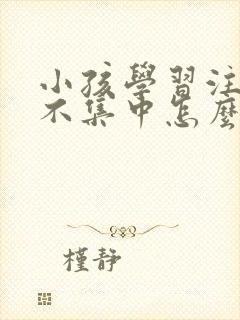 小孩學習注
不集中怎麼
槿靜